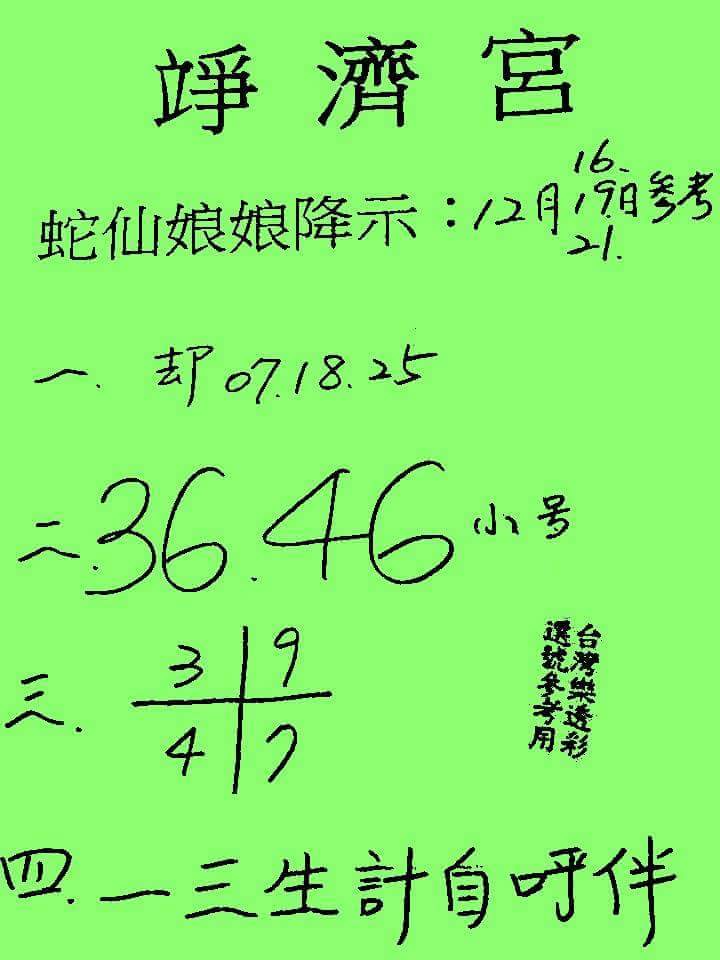 竫濟宮
蛇仙娘娘降示：12月16.19.21.日參考
一. 却07.18.25
二.36.46小号
三. 3 9
4 7
台灣樂透彩
選號參考用
四.一三生計自呼伴